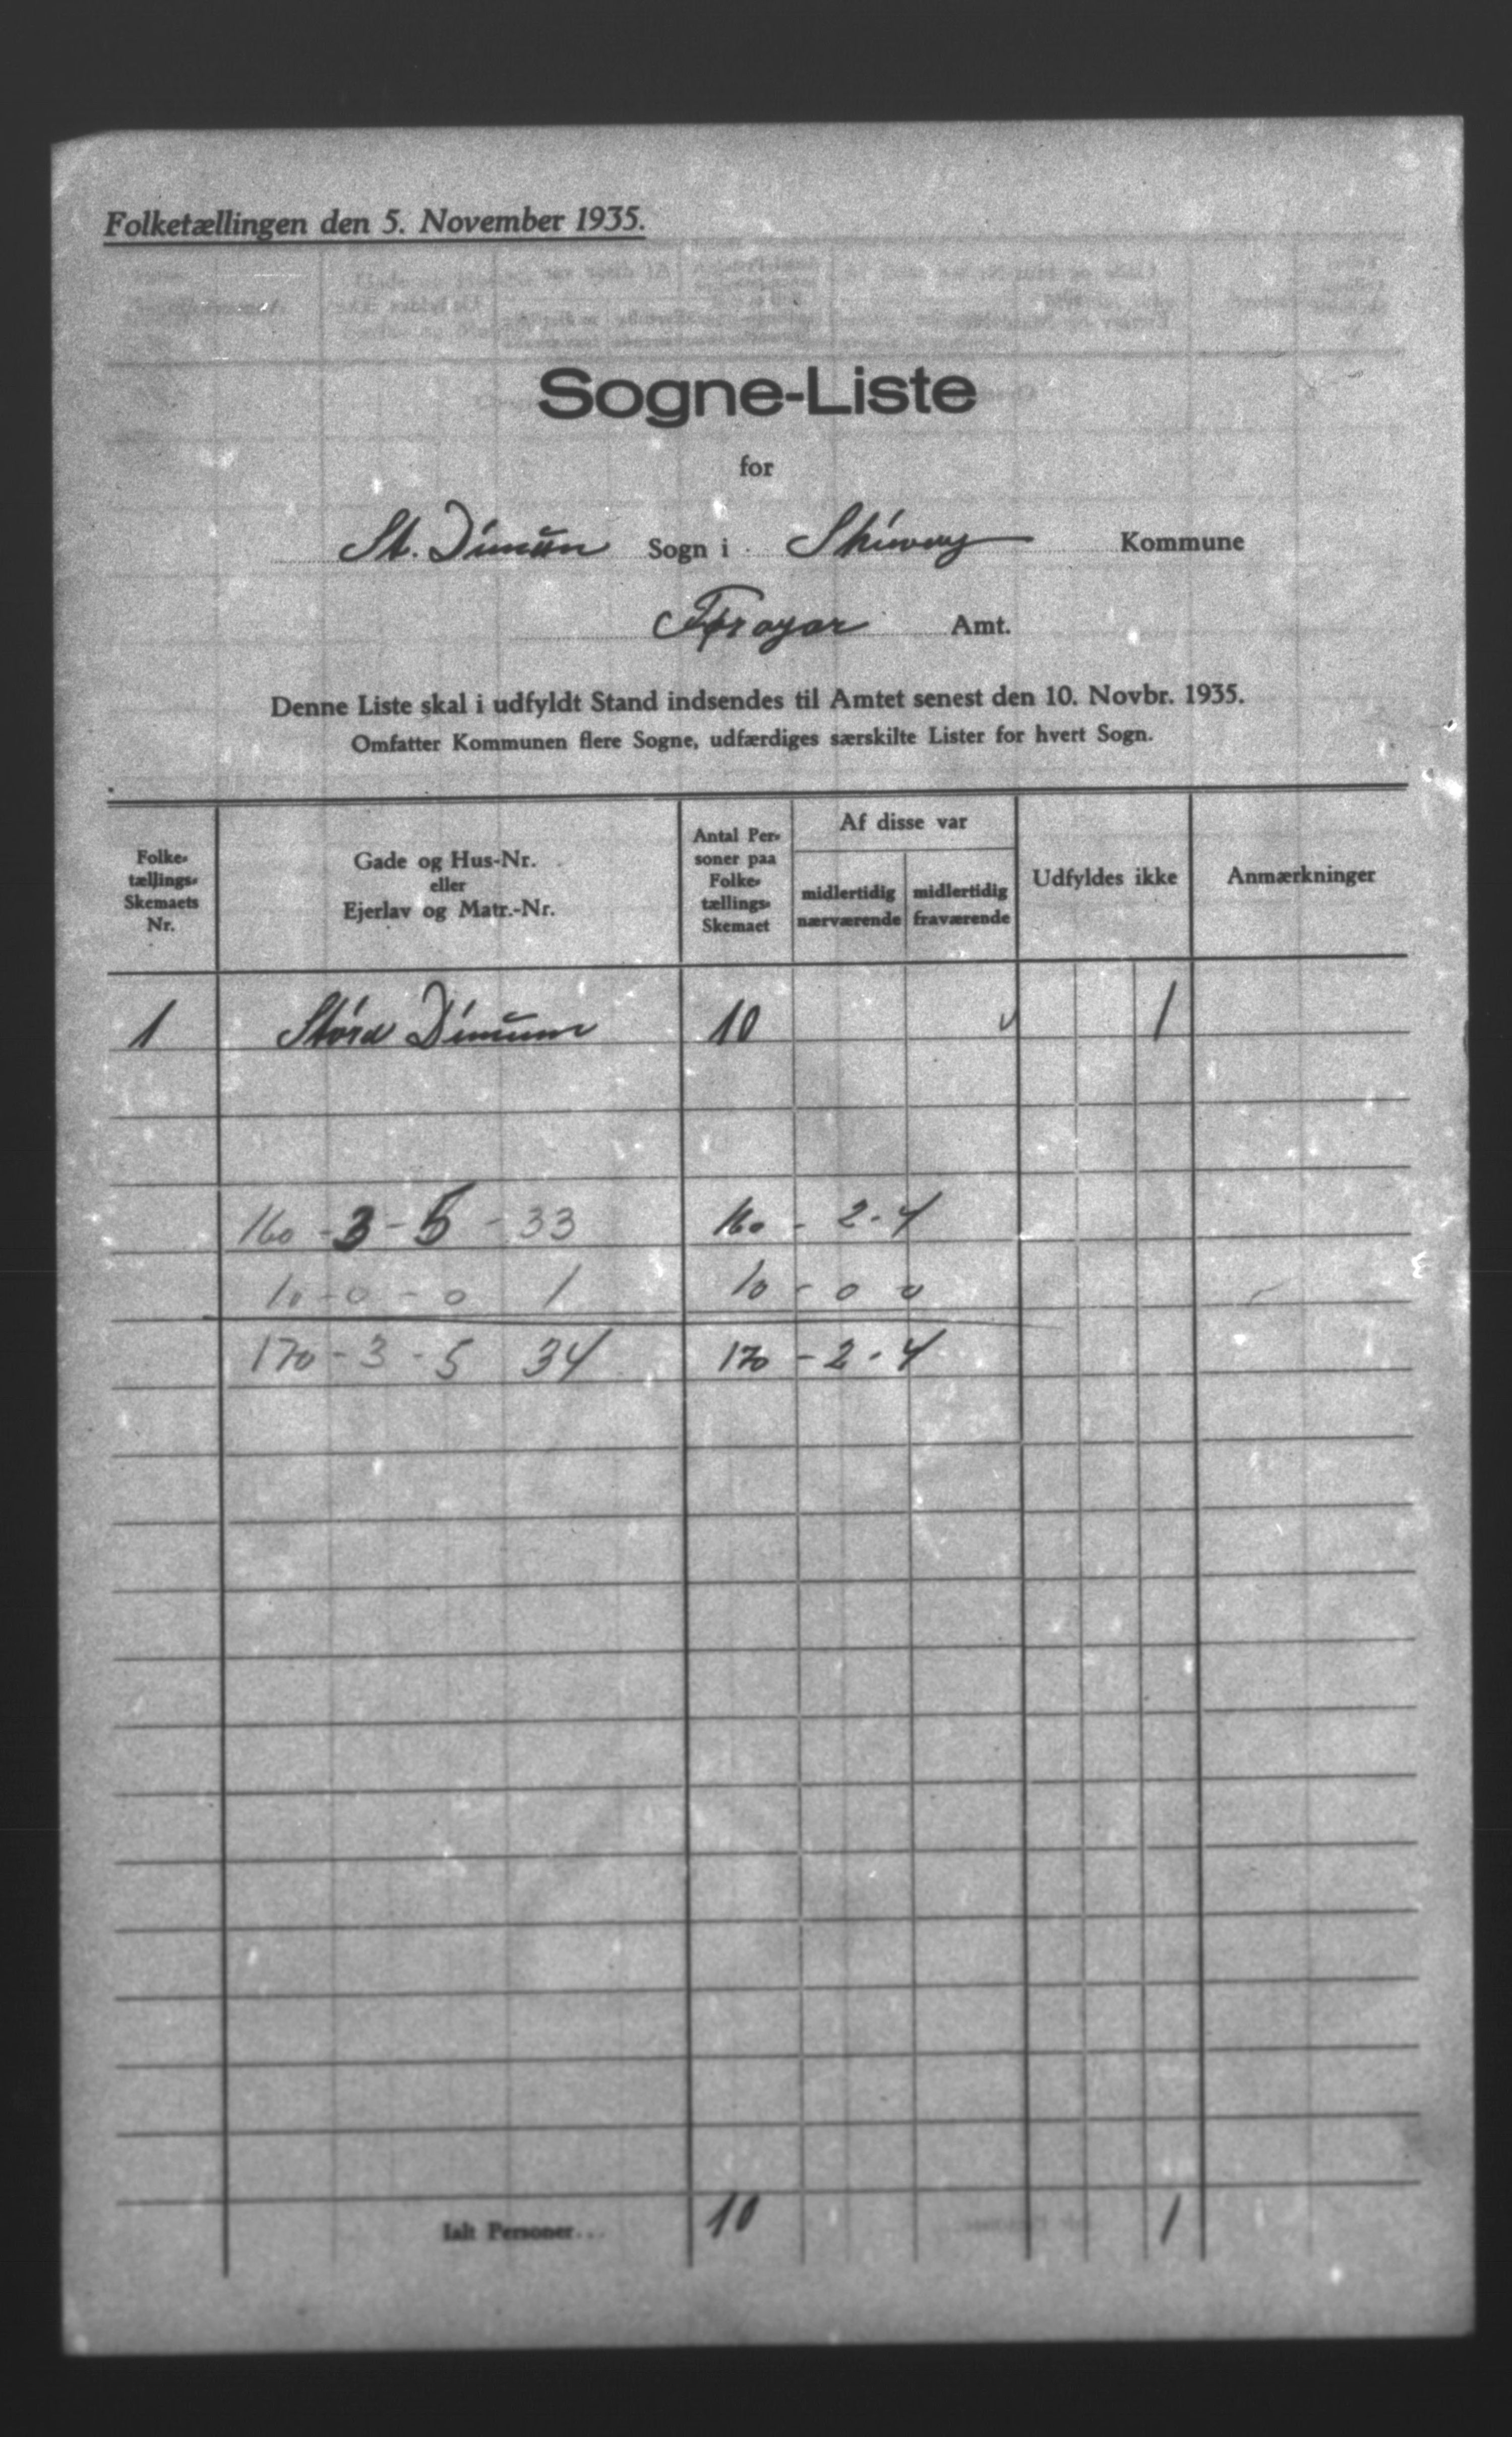 Folketællingen den 5. November 1935.
Sogne-Liste
for
St. Dímŭn Sogn i Skúvoy Kommune
Føroyar Amt.
Denne Liste skal i udfyldt Stand indsendes til Amtet senest den 10. Novbr. 1935.
Omfatter Kommunen flere Sogne, udfærdiges særskilte Lister for hvert Sogn.
Folke-tællings-Skemaets Nr.
Gade og Hus-Nr. eller Ejerlav og Matr.-Nr.
Antal Personer paa Folke-tællings-Skemaet
Af disse var
midlertidig nærværende
midlertidig fraværende
Udfyldes ikke
Anmærkninger
1 Stóra Dímun 10 1
160 - 3 - 5 - 33 160 - 2 - 4
10 - 0 - 0 1 10 - 0 0
170 - 3 - 5 34 170 - 2 - 4
Ialt Personer... 10 1